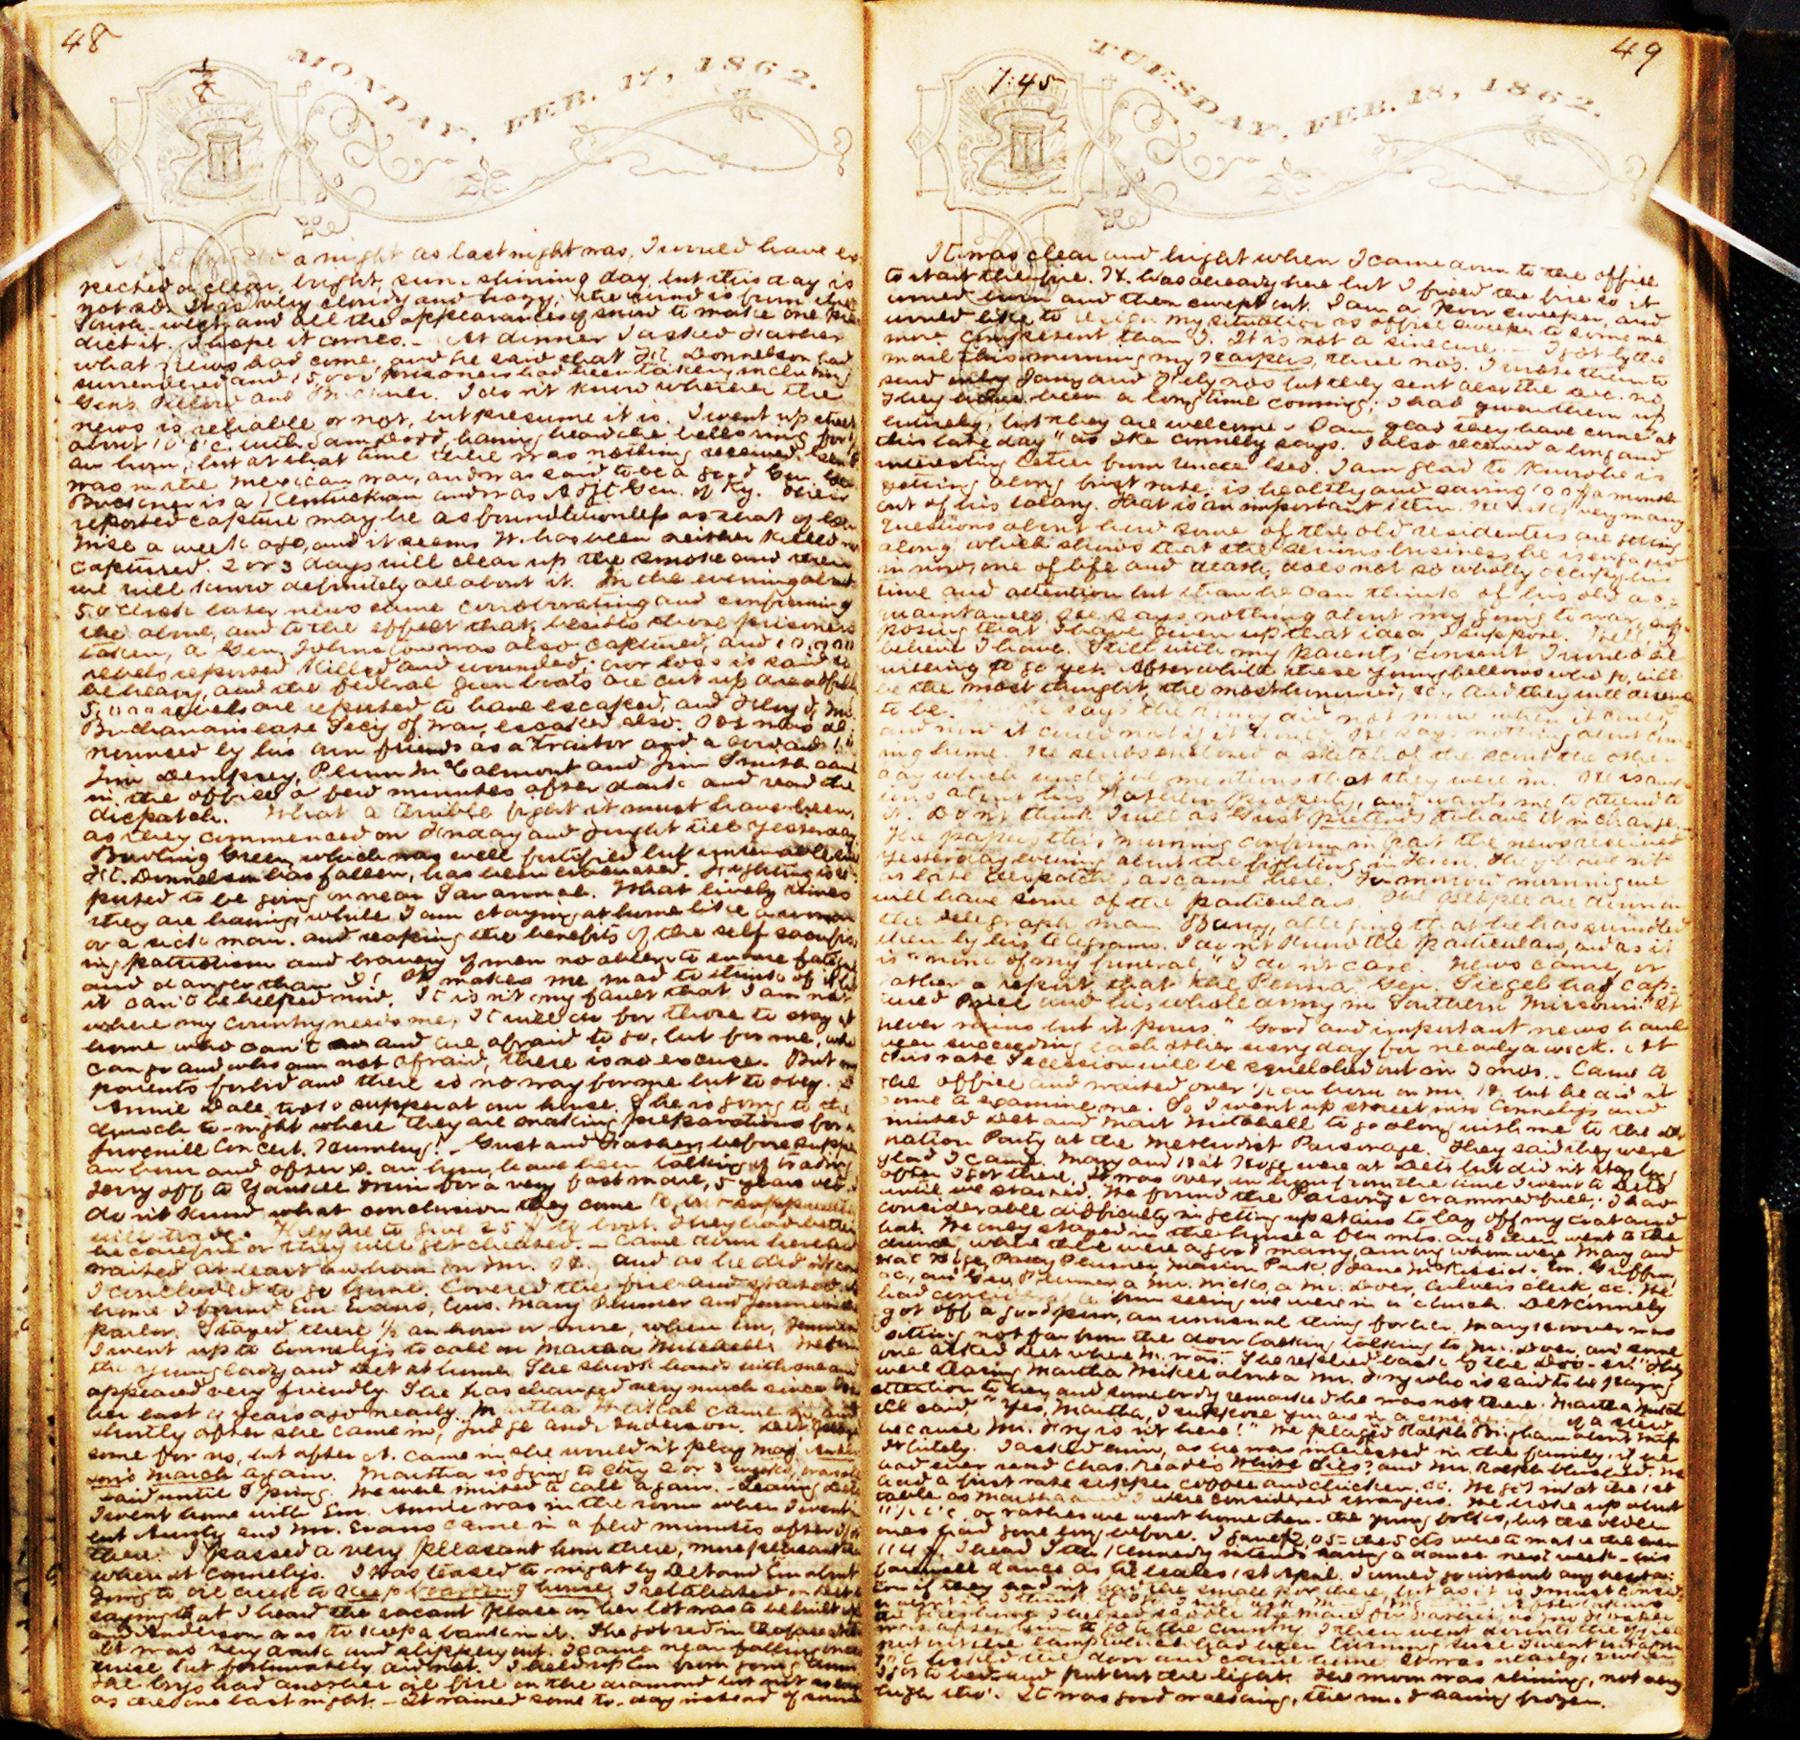 48
MONDAY, FEB. 17, 1862.
1/8
a night as last night was, I would have ex
pected a clear, bright, sun-shining day, but this day is
not so. It is very cloudy and hazy, the wind is from the
South-west and all the appearances of snow to make one pre
dict it. I hope it comes. - At dinner I asked Frasher
what news had come, and he said that Ft. Donnelson had
surrendered and 15,000 prisoners had been taken, including
Gens. Pillow and Buckner. I don't know whether the
news is reliable or not, but presume it is. I went up street
about 10 o'c. with Sam Dodd, having heard the bells ring for
an hour, but at that time there was nothing received.
was in the Mexican war, and was said to be a good Gen.
Buckner is a Kentuckian and was Adjt. Gen. of Ky. Their
reported capture may be as foundationless as that of Gen.
Wise a week ago, and it seems W. has been neither killed nor
captured. 2 or 3 days will clear up the smoke and then
we will know definitely all about it. In the evening about
5 o'clock later news came corroborating and confirming
the above, and to the effect that, besides those prisoners
taken, a Gen. Johnston was also captured, and 10,000
rebels reported killed and wounded; our loss is said to
be heavy, and the federal gun boats are cut up dreadfully
5,000 rebels are reported to have escaped, and Floyd,
Buchanan's late Secy of War, escaped also. It is now de
nounced by his own friends as a traitor and a coward!!
Jim Dempsey, Plum McCalmont and Jim Smith came
in the office a few minutes after dark and read the
dispatch. What a terrible fight it must have been,
as they commenced on Friday and fought till yesterday.
Bowling Green which was well fortified but untenable
Ft. Donnelson has fallen, has been evacuated. Fighting is re
ported to be going on near Savannah. What lively times
they are having while I am staying at home like a woman
or a sick man, and reaping the benefits of the self sacrific
ing patriotism and bravery of men no abler to endure fatigue
and danger than I! It makes me mad to think of it but
it can't be helped now. It isn't my fault that I am not
where my country needs me, It will do for those to stay at
home who can't and are afraid to go, but for me, who
can go and who am not afraid, there is no excuse. But my
parents forbid and there is no way for me but to obey.
Annie Dale took supper at our house. She is going to the
church to-night where they are making preparations for a
Juvenile Concert. Humbug! - Gust and Frasher, before supper
an hour and after an hour, have been talking of trading
Jerry off to Yankee for a very fast mare, 5 years old.
don't know what conclusion they came to
will trade. They are to give 25 $ to boot. They had better
be careful or they will get cheated. - Came down here and
waited at least an hour on Mr. K. and as he did not come
I concluded to go home. Covered the fire and started.
home I found Em Evans, Cous. Mary Plumer and
parlor. I stayed there ½ an hour or more, when Em,
I went up to Connely's to call on Martha Mitchell. We found
the young lady and Det at home. She shook hands with me and
appeared very friendly. She has changed very much since
her last 4 years ago nearly. Martha
shortly after she came in, Judge and Anderson. Det
some for us, but after A. came in she wouldn't play
March again. Martha is going to stay 2 or 3 weeks,
said until Spring. We were invited to call again. Leaving Dets
I went home with Em. Annie was in the room when I went in
but Aunty and Mr. Evans came in a few minutes after I got
there. I passed a very pleasant hour there, more pleasant
when at Connelys. I was teased to-night by Det and Em about
going to oil creek to keep boarding house; I retaliated on Det
saying that I heard the vacant place on her lot was to be built
and Anderson was to keep a bank in it. She got red in the face
It was very dark and slippery out. I came near falling
twice but fortunately did not. I held up Em from going down
The boys had another oil fire on the diamond but not as
as the one last night. - It rained some to-day instead of
49
TUESDAY, FEB. 18, 1862.
7:45
It was clear and bright when I came down to the office
to start the fire. K. was already here but I fixed the fire so it
would burn and then swept out. I am a poor sweeper, and
would like to resign my situation as office sweeper to some one
more competent than I. It is not a sinecure. - I got by the
mail this morning my Harpers, three nos. I wrote them to
send only Jany and Feby nos but they sent also the Dec. no.
They have been a long time coming; I had given them up
entirely, but they are welcome. I am glad they have come "at
this late day" as Ike Connely says. I also received a long and
interesting letter from Uncle Jed. I am glad to know he is
getting along first rate, is healthy and saving 100 $ a month
out of his salary. That is an important item. He asks very many
questions about how some of the old residenters are getting
along, which shows that the serious business he is engaged
in now, one of life and death, does not so wholly occupy his
time and attention but than he can think of his old ac-
quaintances. He says nothing about my going to war, sup-
posing that I have given up that idea, I suppose. Well, I
believe I have. Still with my parents' consent, I would be
willing to go yet. After while these young fellows who go, will
be the most thought, the most honored, &c., and they will deserve
to be. He says the Army did not move when it could,
and now it could not if it would. He says nothing about com-
ing home. He sends enclosed a sketch of the scout the other
day which mentions that they were in. He is anx-
ious about his property, and wants me to attend to
it. Don't think I will as Gust pretends to have it in charge.
The papers this morning confirm in part the news received
yesterday evening about the fighting in Tenn. They have not
as late despatches as came here. To-morrow morning we
will have some of the particulars. The people are down on
the telegraph man, alleging that he has swindled
them by his telegrams. I don't know the particulars, and as it
is "none of my funeral" I don't care. News came, or
rather a report that the Penna. Gen. Siegel had cap-
tured Price and his whole army in Southern Missouri. "It
never rains but it pours." Good and important news have
been succeeding each other every day for nearly a week. At
this rate Secession will be squelched out in 3 mos. - Came to
the office and waited over ½ an hour on Mr. K. but he didn't
come to examine me. So I went up street into Connelys and
invited Det and Mart Mitchell to go along with me to the Do
nation Party at the Methodist Parsonage. They said they were
glad I came. Mary and Nat Hoge were at Dets but didn't stay long
after I got there, it was over an hour from the time I went to Dets
until we started. We found the Parsonage crammed full; I had
considerable difficulty in getting up stairs to lay off my coat and
hat. We only stayed in the house a few mins. and then went to the
church where there were a good many, among whom were Mary and
Nat Hoge, Plumer, Park, Jane McKissick, Em. Griffin,
&c., and Plumer, a Mr. Hicks, a Mr. Dover, Culver's clerk, &c. We
had considerable fun seeing we were in a church. Det Connely
got off a good pun, an unusual thing for her. Mary was
sitting not far from the door talking to Mr. Dover, and some
one asked Det where M. was. She replied back by the Doo-er." They
were teasing Martha Mitchell about a Mr. Fry who is said to be paying
attention to her, and somebody remarked he was not there.
said, "Yes, Martha, I suppose you are in a considerable of a stew
because Mr. Fry isn't here!" We plagued Ralph Brigham about
I asked him, as he was interested in the family, if he
had ever read Chas. Reade's White Lies? and Mr. Ralph blushed. We
had a first rate supper coffee and chicken, &c. We got in at the 1st
table as Martha and I were considered strangers. We broke up about
o'c, or rather we went home then - the young folks, but the older
ones had gone long before. I gave $2.05 - the 5 cts were to make the even
114 $. I hear Kennedy intends having a dance next week - his
farewell dance as he leaves 1st Apl.
ton if they hadn't had the small pox there, but as it is I must
to go to the country. I then went down to the office
put out the lamp which had been burning since I went up
locked the door and came home. It was nearly
I got to bed and put out the light. The moon was shining, not very
high tho'. It was good walking, the mud having frozen.